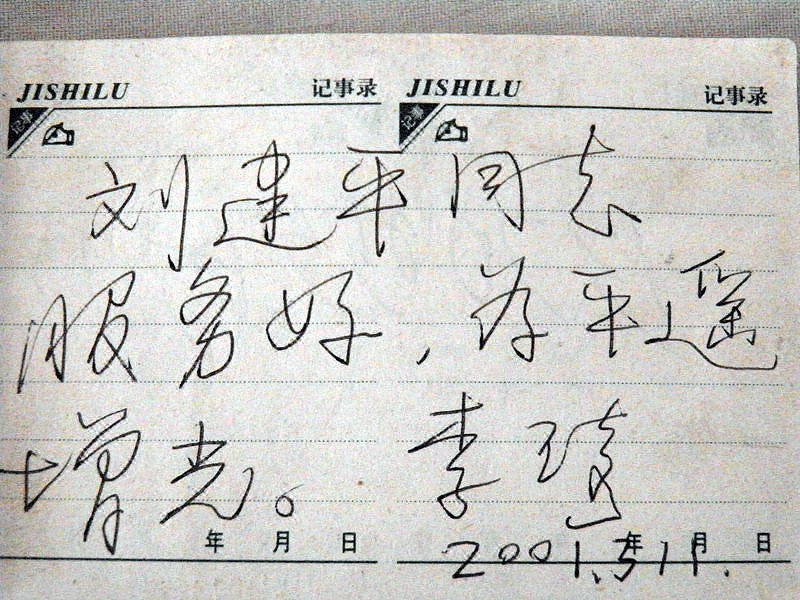 JISHILU 记事录 JISHILU 记事录
记事 记事
刘建平同志
服务好，为平遥
增光。 李
年 月 日 年 月 日
2001.5.11.